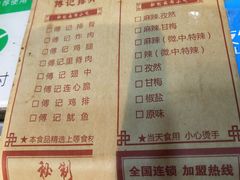 傅记排骨
□傅记排骨
□傅记炸肉
□傅记鸡腿
□傅记里脊肉
□傅记翅中
□傅记连心脆
□傅记鸡排
□傅记鱿鱼
★本食品精选上等食材
秘制
□麻辣.孜然
□麻辣.甘梅
□麻辣(微.中.特辣)
□辣(微.中.特辣)
□孜然
□甘梅
□椒盐
□原味
★当天食用 小心烫手
全国连锁 加盟热线